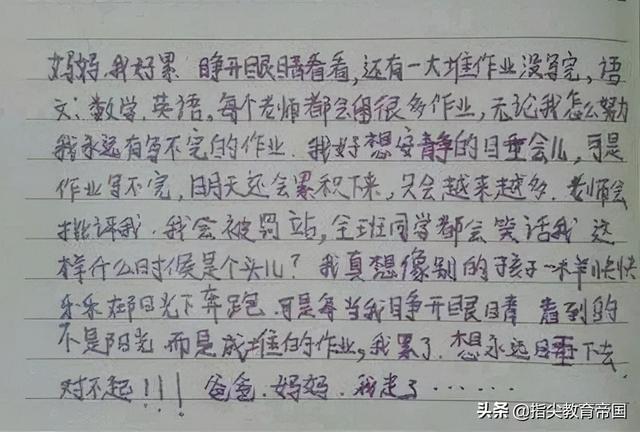 妈妈,我好累 睁开眼睛看看,还有一大堆作业没写完,语
文,数学,英语。每个老师都会留很多作业,无论我怎么努力
我永远有写不完的作业.我好想安静的睡会儿,可是
作业写不完,明天还会累积下来,只会越来越多.老师会
批评我.我会被罚站,全班同学都会笑话我 这
样什么时候是个头儿?我真想像别的孩子一样快快
乐乐在阳光下奔跑 可是每当我睁开眼睛 看到的
不是阳光 而是成堆的作业,我累了.想永远睡下去
对不起!!!爸爸.妈妈.我走了······
头条 @指尖教育帝国